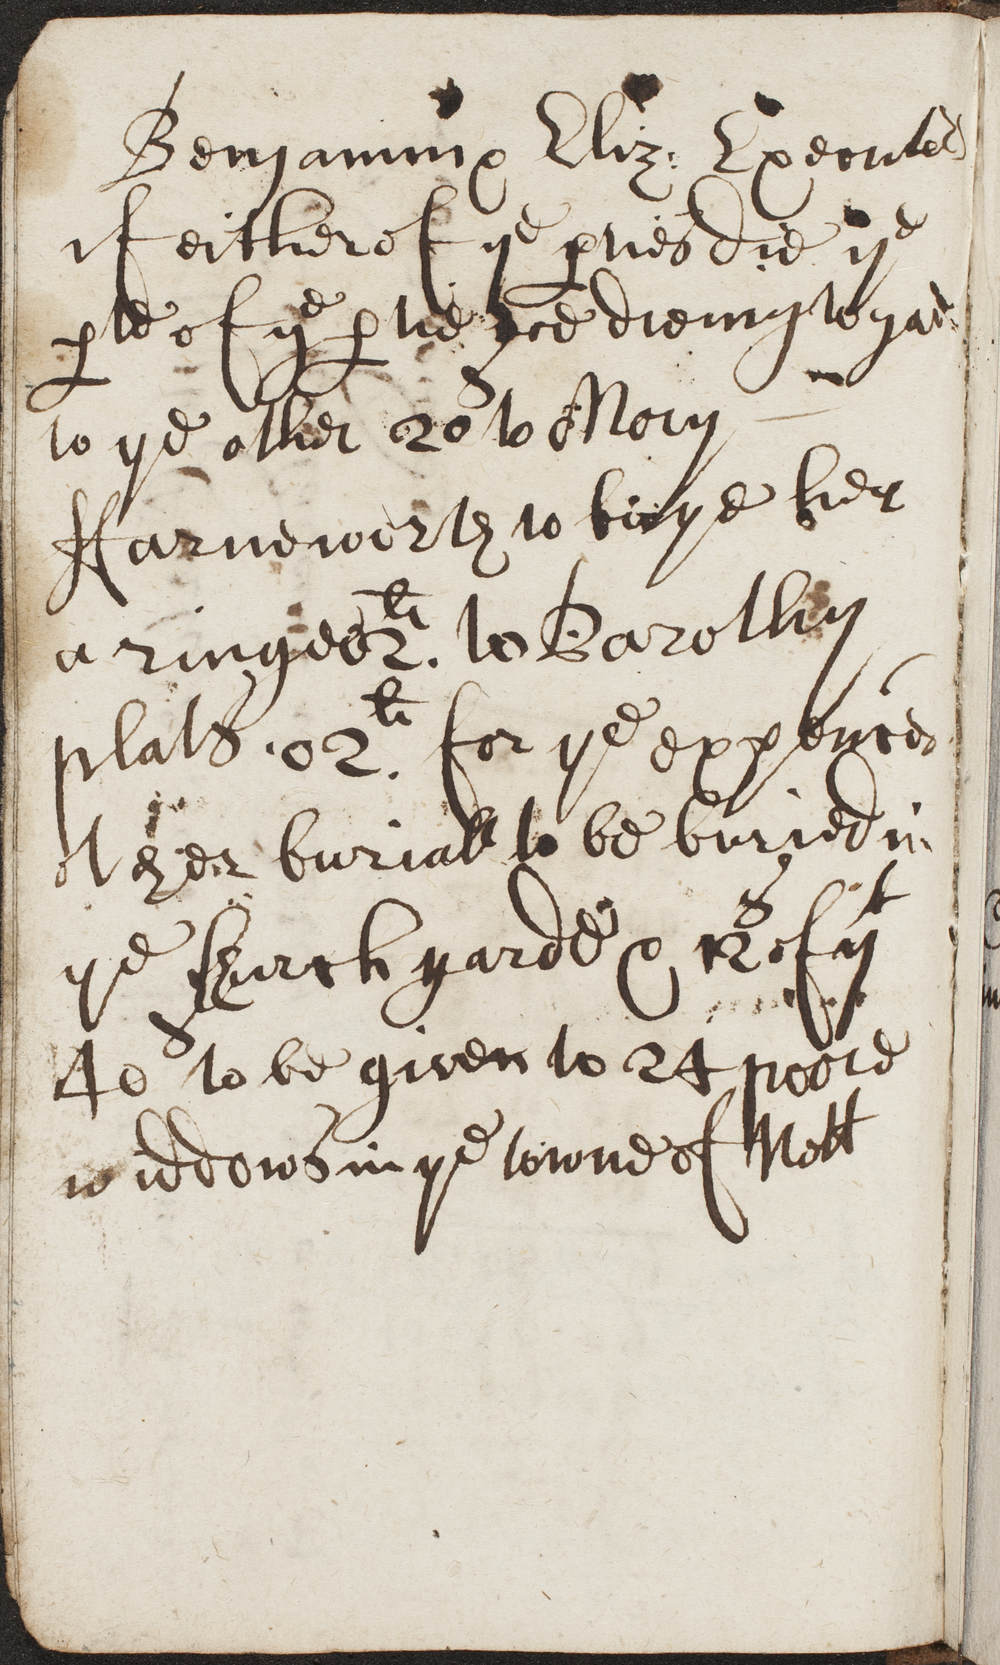 Benjamin & Eliz: Executors
if either of ye pties die ye
pte of ye ptie soe dieing to
to ye other 20s to Mary
Harneworth to buye her
a ringe 02li. to Barothy
plats. 02li. for ye expences
at her buriall to be buried in
ye Church yarde & 12s of yt
40s to be given to 24 poore
widdows in ye towne of Nott